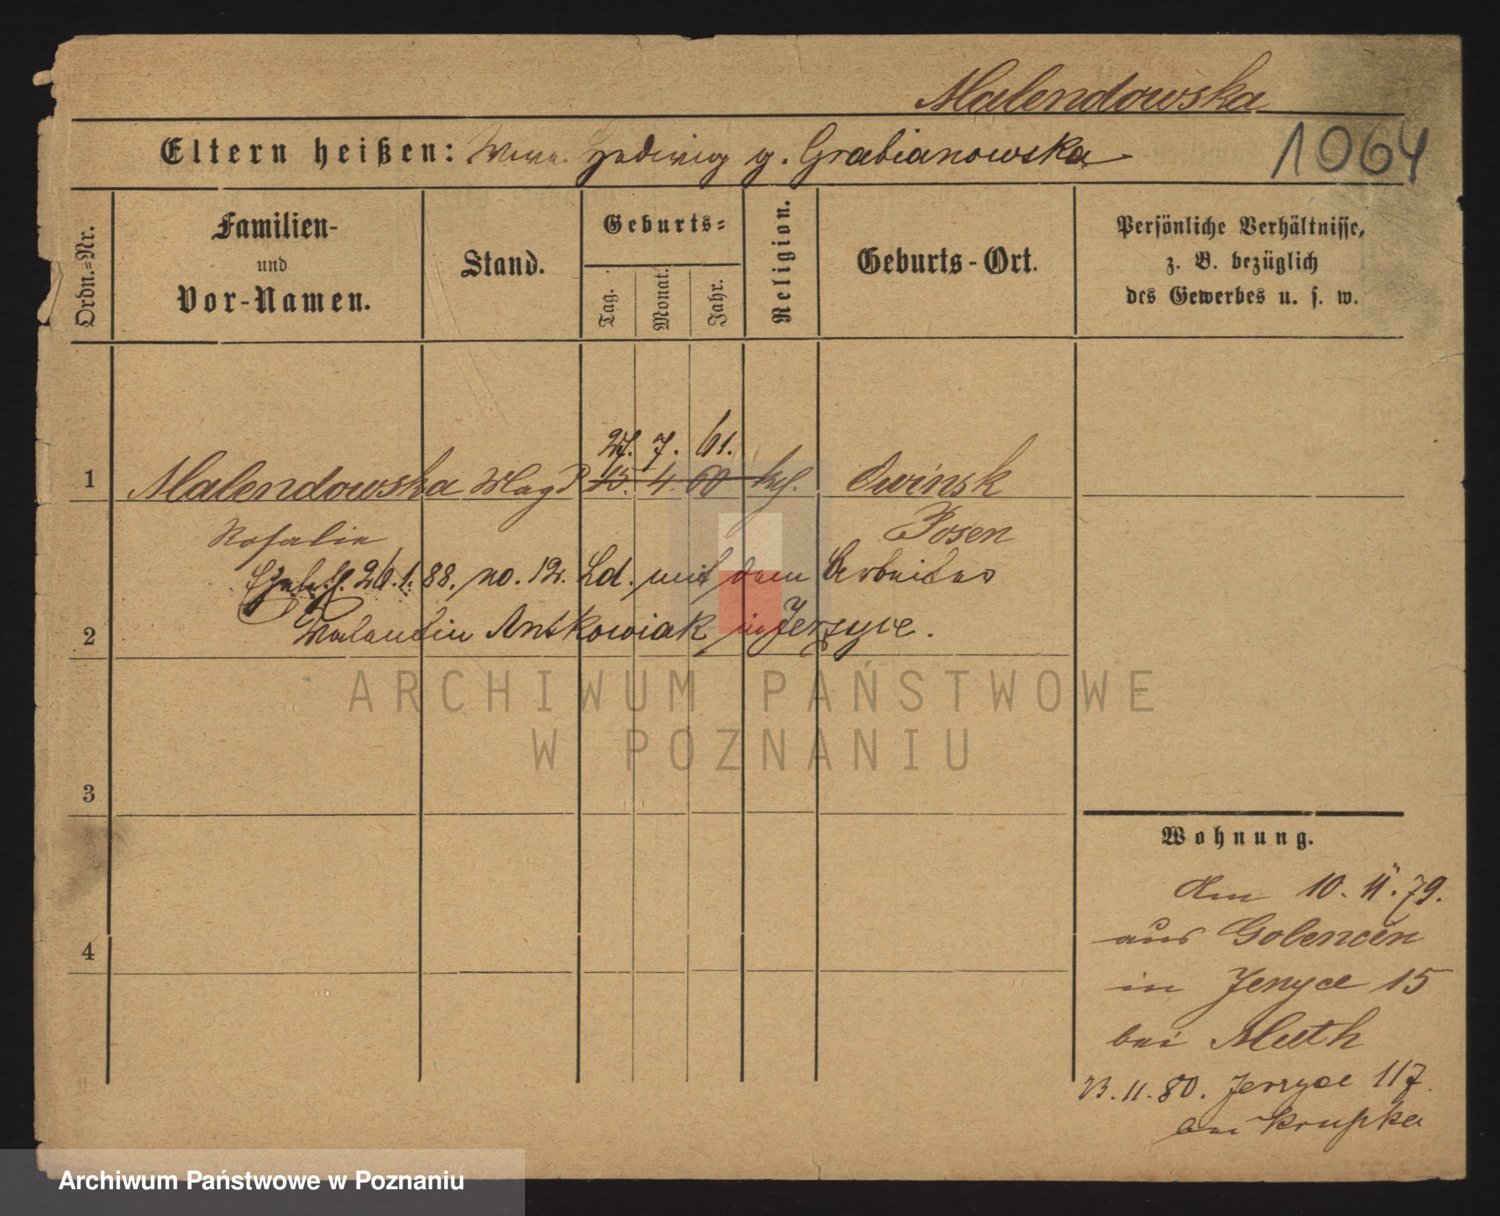 Malendowska
Eltern heißen: Hedwig g. Grabianowska
1064
Ordn.=Nr.
Familien-
und
Vor-Namen.
Stand.
Geburts=
Tag.
Monat.
Jahr.
Religion.
Geburts-Ort.
Persönliche Verhältnisse,
z. B. bezüglich
des Gewerbes u. s. w.
27. 7. 61.
1 Malendowska Magd 15. 4. 60 kth. Owinsk
Rosalie Posen
26.1.88. no. 12. Ld. mit dem Arbeiter
2 Valentin Antkowiak in Jerzyce.
3
4
Wohnung.
Am 10. 11. 79.
aus Golencin
in Jerzyce 15
bei Muth
23. 11. 80. Jerzyce 117
bei Krupka
ARCHIWUM PAŃSTWOWE
W POZNANIU
Archiwum Państwowe w Poznaniu